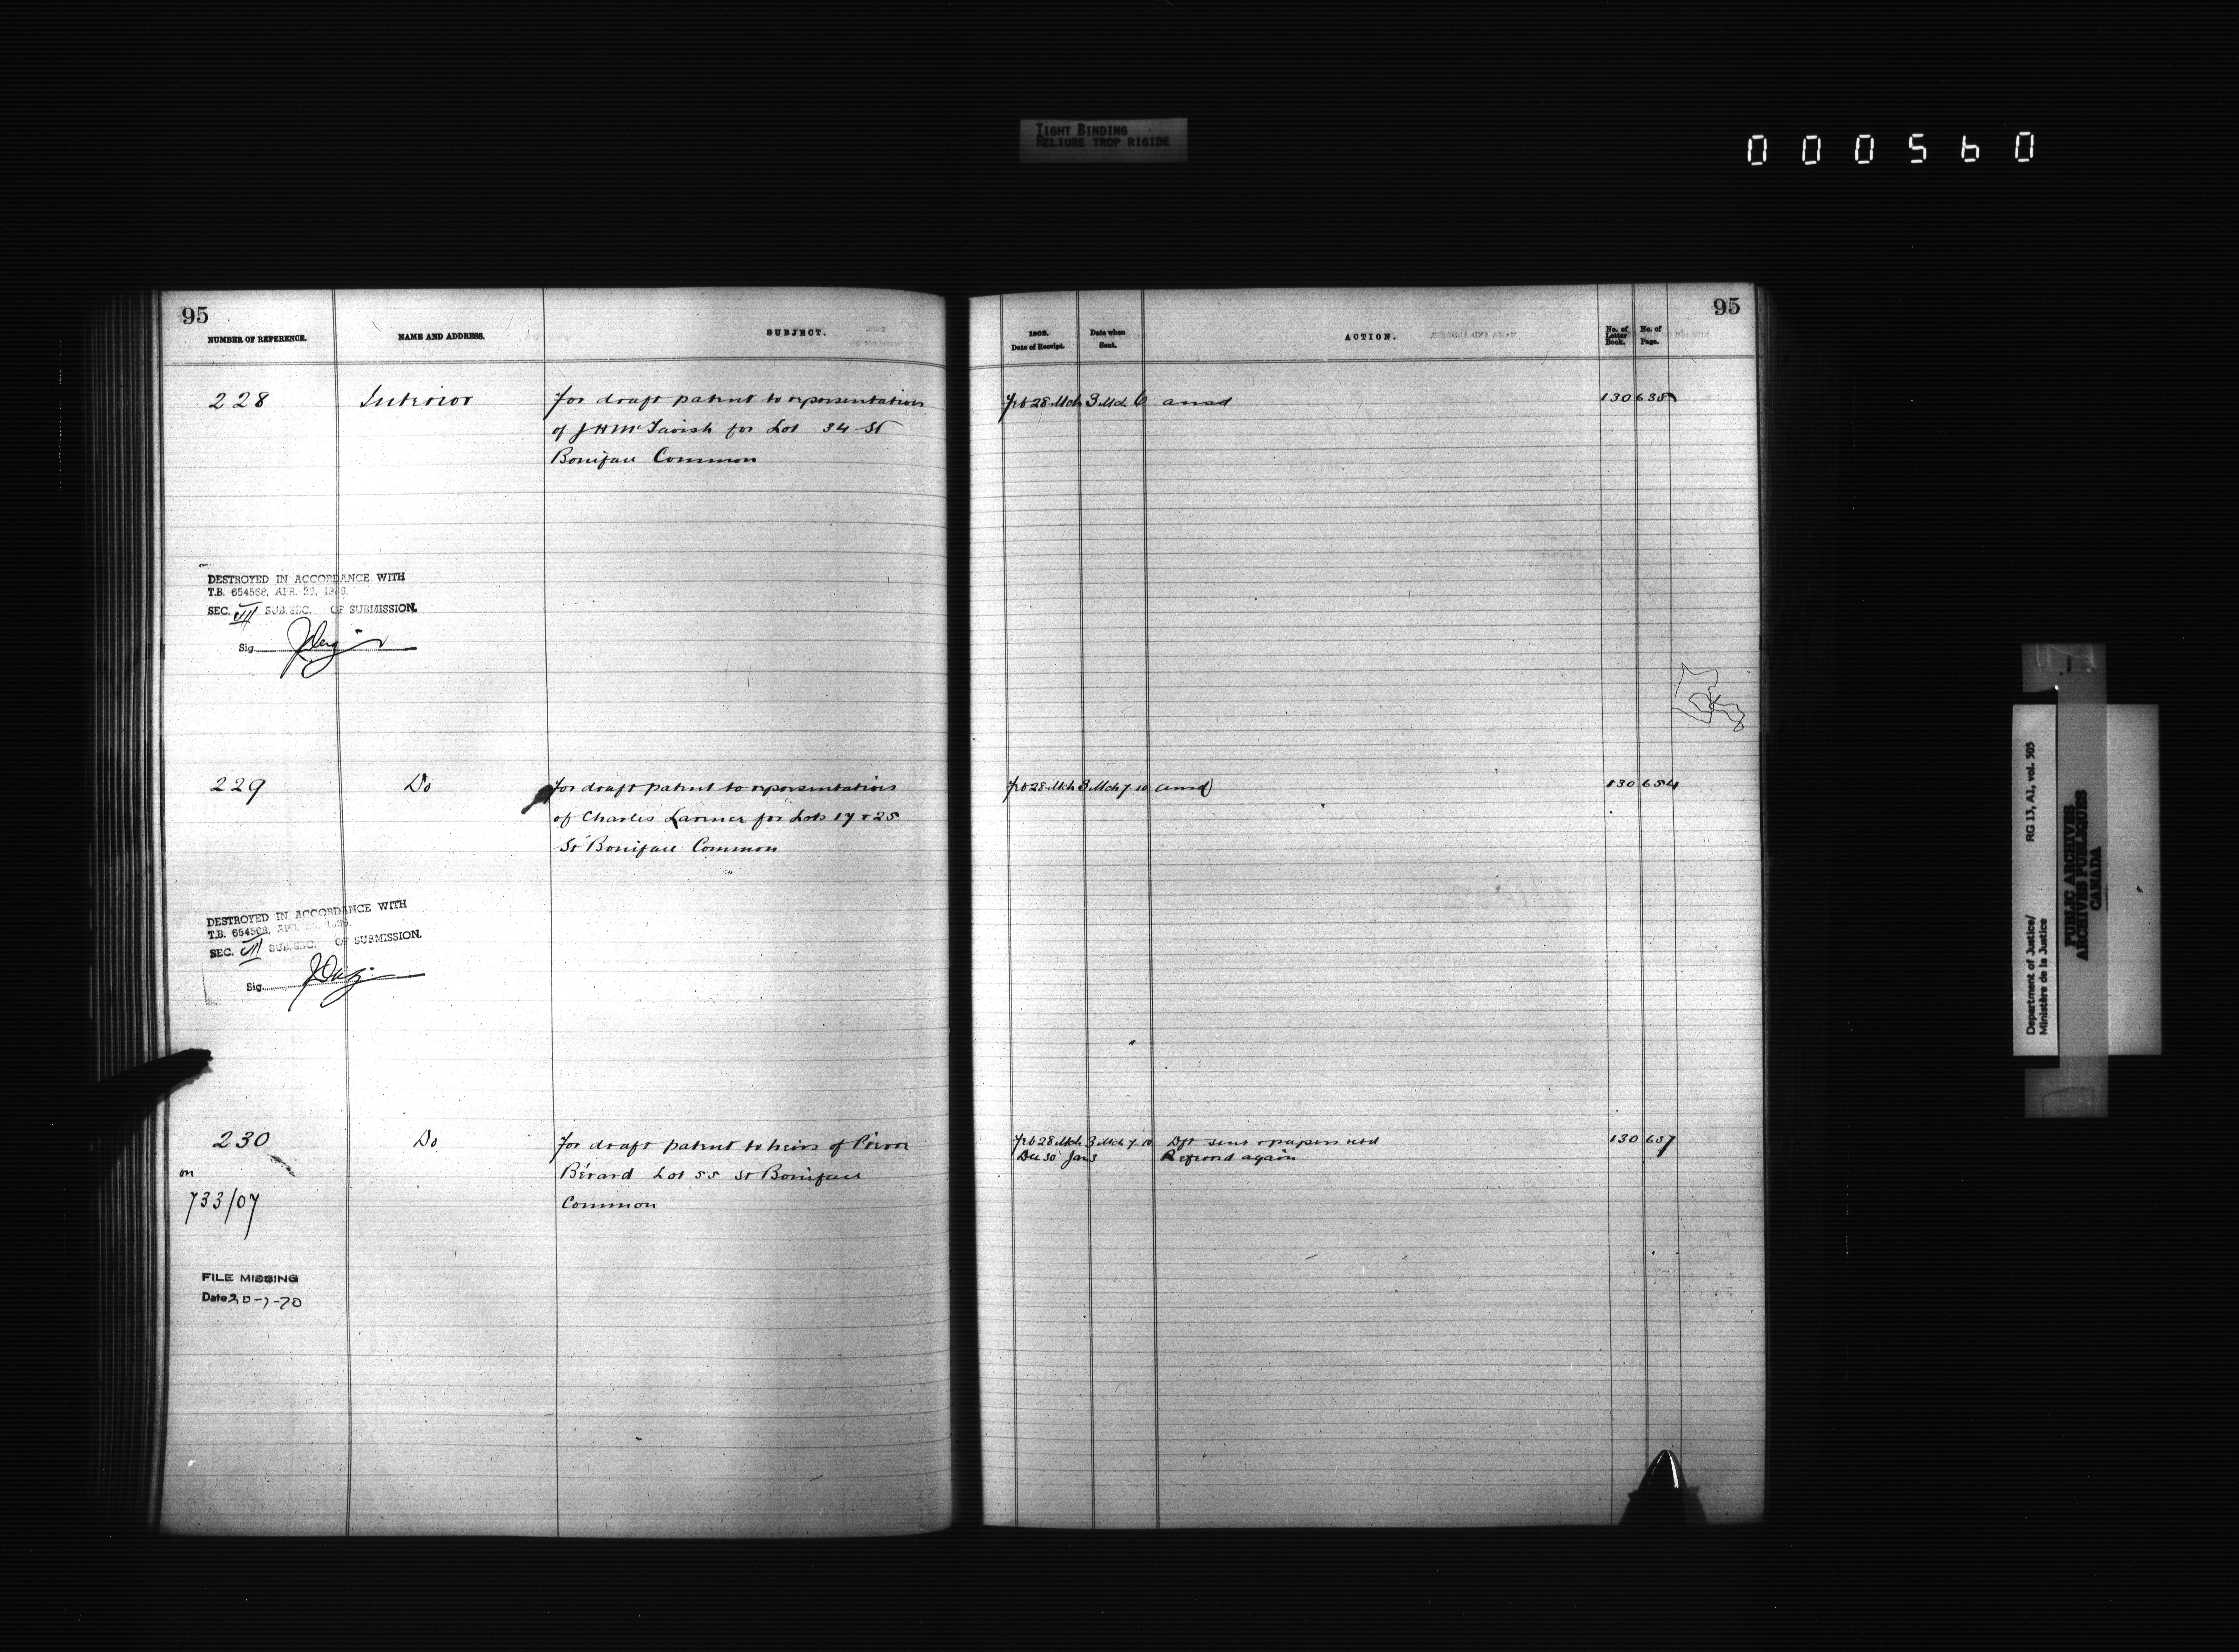 TIGHT BINDING
RELIURE TROP RIGIDE
000560
95
NUMBER OF REFERENCE. NAME AND ADDRESS. SUBJECT.
228 Interior For draft patent to representatives
of J H McTavish for Lot 34 St
Boniface Common
DESTROYED IN ACCORDANCE WITH
T.B. 654568, APR.
SEC. VII SUB.SEC. OF SUBMISSION.
Sig.
229 Do For draft patent to representatives
of Charles Larence for Lots 17 & 25
St Boniface Common
DESTROYED IN ACCORDANCE WITH
T.B. 654568,
SEC. VII SUB.SEC. OF SUBMISSION.
Sig.
230 Do For draft patent to heirs of Pierre
on Bérard Lot 55 St Boniface
733/07 Common
FILE MISSING
Date 20-7-70
95
1903. Date of Receipt. Date when Sent. ACTION. No. of Letter Book. No. of Page.
Feb 28 Mch 3 Mch 6 ansd 130 635
Feb 28 Mch 3 Mch 7 10 ansd 130 654
Feb 28 Mch 3 Mch 7 10 Dft sent & papers retd 130 657
Dec 30 Jan 3 Referred again
Department of Justice/ RG 13, A1, vol. 505
Ministère de la Justice
PUBLIC ARCHIVES
ARCHIVES PUBLIQUES
CANADA